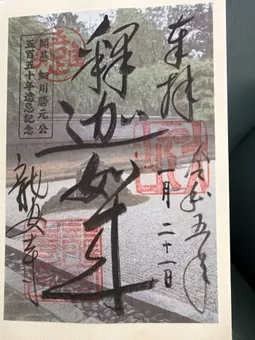 奉拝
令和五年
一月二十一日
釋迦如来
開基 細川勝元公
五百五十年遠忌記念
龍安寺